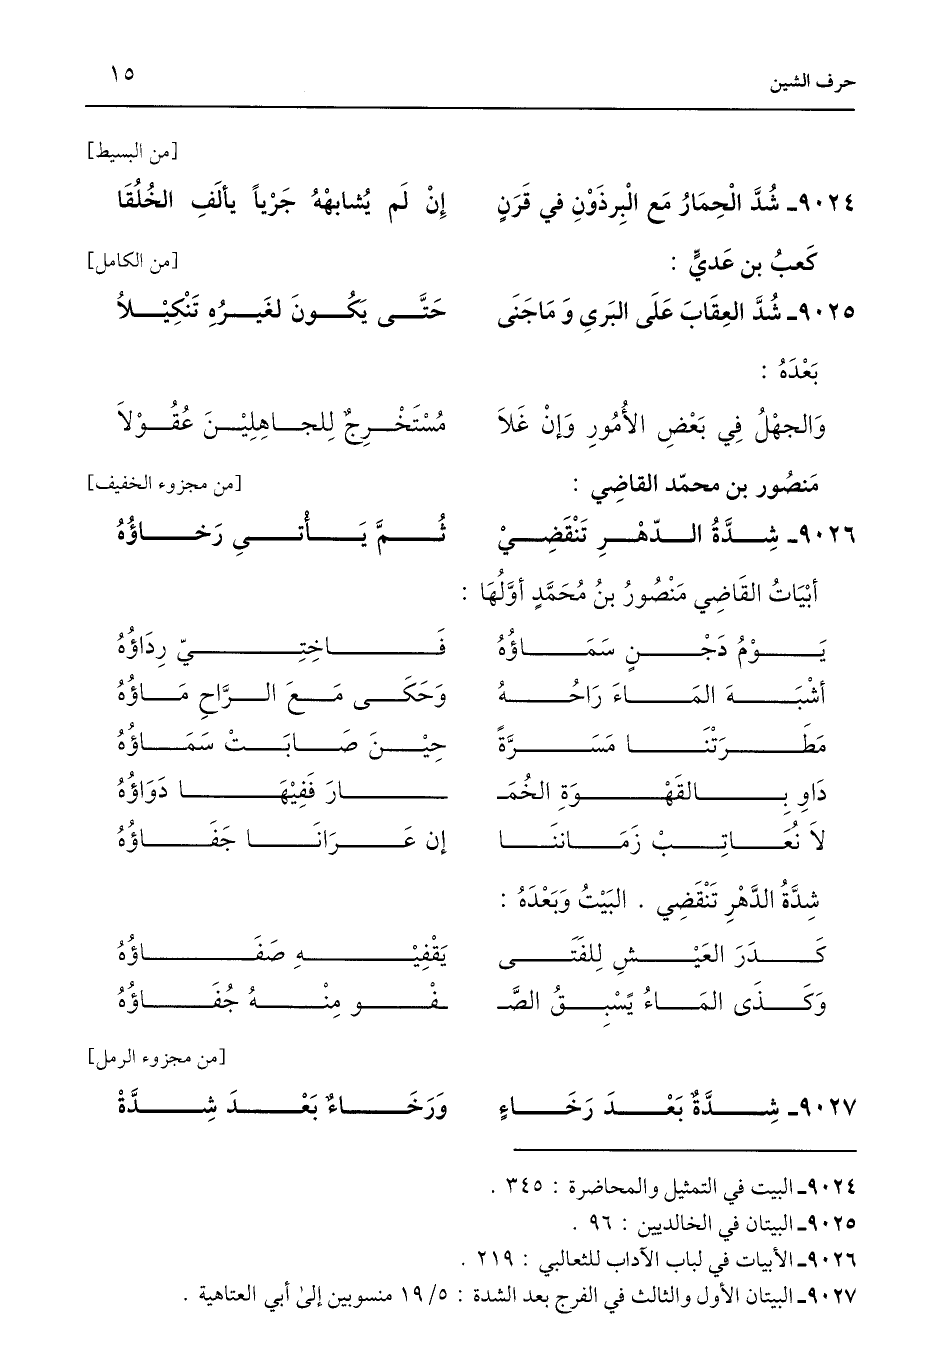 حرف الشين ١٥
[من البسيط]
٩٠٢٤ـ شُدَّ الْحِمَارُ مَع الْبِرذَوْنِ في قَرَنٍ إنْ لَم يُشابهْهُ جَرْياً يألَفِ الخُلُقَا
كَعبُ بن عَديٍّ : [من الكامل]
٩٠٢٥ـ شُدَّ العِقَابَ عَلَى البَري وَمَاجَنَى حَتَّى يَكُونَ لغَيرُهِ تَنْكِيْلاً
بَعْدَهُ :
وَالجهْلُ فِي بَعْضِ الأُمُورِ وَإنْ غَلاَ مُسْتَخْرِجٌ لِلجاهِلِيْنَ عُقُوْلاَ
مَنصُور بن محمّد القاضِي : [من مجزوء الخفيف]
٩٠٢٦ـ شِدَّةُ الدّهْرِ تَنْقَضِيْ ثُمَّ يَأْتي رَخاؤُهُ
أبْيَاتُ القَاضِي مَنْصُورُ بنُ مُحَمَّدٍ أوَّلُهَا :
يَوْمُ دَجْنٍ سَمَاؤُهُ فَاخِتِيّ رِدَاؤُهُ
أشْبَهَ المَاءَ رَاحُهُ وَحَكَى مَعَ الرَّاحِ مَاؤُهُ
مَطَرَتْنَا مَسَرَّةً حِيْنَ صَابَتْ سَمَاؤُهُ
دَاوِ بِالقَهْوَةِ الخُمَـ ـارَ فَفِيْهَا دَوَاؤُهُ
لاَ نُعَاتِبْ زَمَاننَا إن عَرَانَا جَفَاؤُهُ
شِدَّةُ الدَّهْرِ تَنْقَضِي . البَيْتُ وَبَعْدَهُ :
كَدَرَ العَيْشِ لِلفَتَى يَقْفِيْهِ صَفَاؤُهُ
وَكَذَى المَاءُ يَسْبِقُ الصَّـ ـفْو مِنْهُ جُفَاؤُهُ
[من مجزوء الرمل]
٩٠٢٧ـ شِدَّةٌ بَعْدَ رَخَاءٍ وَرَخَاءٌ بَعْدَ شِدَّةْ
٩٠٢٤ـ البيت في التمثيل والمحاضرة : ٣٤٥ .
٩٠٢٥ـ البيتان في الخالديين : ٩٦ .
٩٠٢٦ـ الأبيات في لباب الآداب للثعالبي : ٢١٩ .
٩٠٢٧ـ البيتان الأول والثالث في الفرج بعد الشدة : ٥/ ١٩ منسوبين إلىٰ أبي العتاهية .